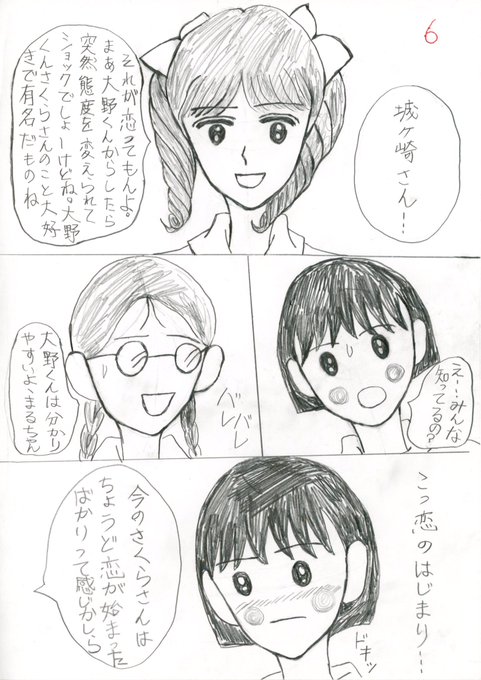 6
城ヶ崎さん…!
それが恋ってもんよ。
まあ大野くんからしたら
突然態度を変えられて
ショックでしょーけどね。大野
くんさくらさんのこと大好
きで有名だものね
えー…みんな
知ってるの?
バレバレ
大野くんは分かり
やすいよ、まるちゃん
こっ恋のはじまり…
ドキッ
今のさくらさんは
ちょうど恋が始まった
ばかりって感じかしら